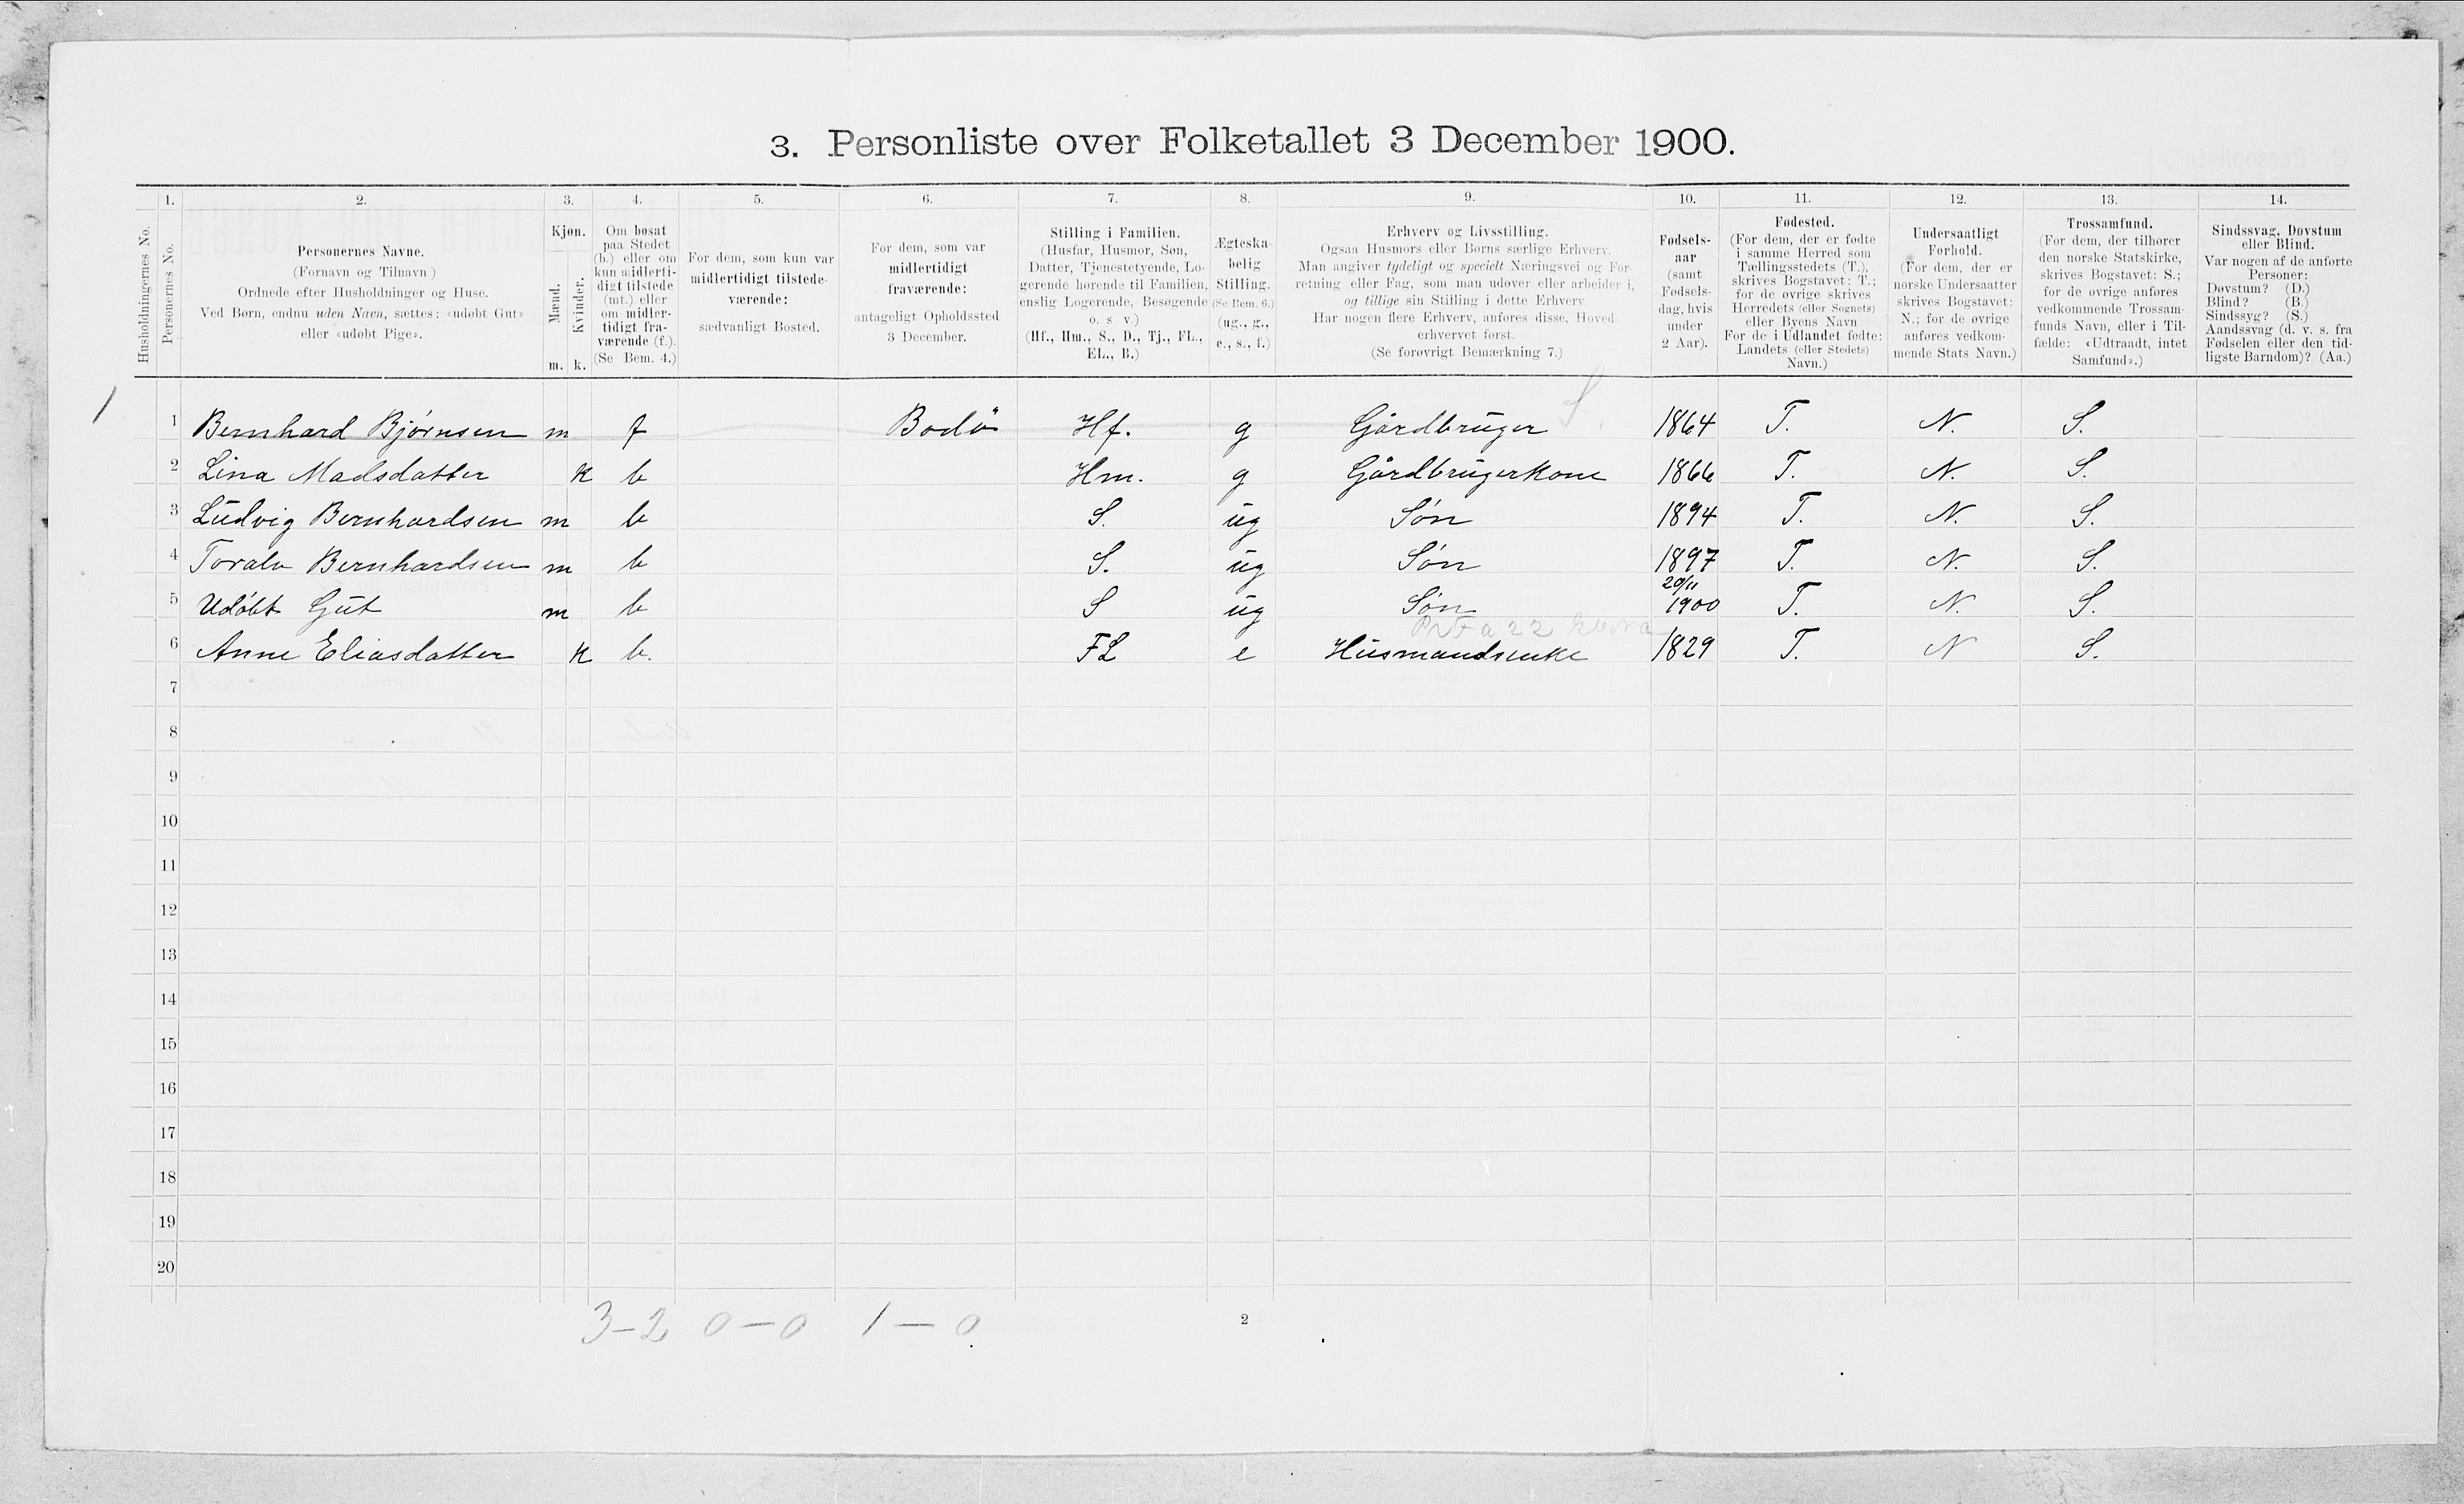 3. Personliste over Folketallet 3 December 1900.
1. 2. 3. 4. 5. 6. 7. 8. 9. 10. 11. 12. 13. 14.
Husholdningernes No.
Personernes No.
Personernes Navne.
(Fornavn og Tilnavn.)
Ordnede efter Husholdninger og Huse.
Ved Børn, endnu uden Navn, sættes: «udøbt Gut»
eller «udøbt Pige».
Kjøn.
Mænd.
Kvinder.
m. k.
Om bosat
paa Stedet
(b.) eller om
kun midlerti-
digt tilstede
(mt.) eller
om midler-
tidigt fra-
værende (f.).
(Se Bem. 4.)
For dem, som kun var
midlertidigt tilstede-
værende:
sædvanligt Bosted.
For dem, som var
midlertidigt
fraværende:
antageligt Opholdssted
3 December.
Stilling i Familien.
(Husfar, Husmor, Søn,
Datter, Tjenestetyende, Lo-
gerende hørende til Familien,
enslig Logerende, Besøgende
o. s v.)
(Hf., Hm., S., D., Tj., FL.,
EL., B.)
Ægteska-
belig
Stilling.
(Se Bem. 6.)
(ug., g.,
e., s., f.)
Erhverv og Livsstilling.
Ogsaa Husmors eller Børns særlige Erhverv.
Man angiver tydeligt og specielt Næringsvei og For-
retning eller Fag, som man udøver eller arbeider i,
og tillige sin Stilling i dette Erhverv.
Har nogen flere Erhverv, anføres disse, Hoved-
erhvervet først.
(Se forøvrigt Bemærkning 7.)
Fødsels-
aar
(samt
Fødsels-
dag, hvis
under
2 Aar).
Fødested.
(For dem, der er fødte
i samme Herred som
Tællingsstedets (T.),
skrives Bogstavet: T.;
for de øvrige skrives
Herredets (eller Sognets)
eller Byens Navn
For de i Udlandet fødte:
Landets (eller Stedets)
Navn.)
Undersaatligt
Forhold.
(For dem, der er
norske Undersaatter
skrives Bogstavet:
N.; for de øvrige
anføres vedkom-
mende Stats Navn.)
Trossamfund.
(For dem, der tilhører
den norske Statskirke,
skrives Bogstavet: S.;
for de øvrige anføres
vedkommende Trossam-
funds Navn, eller i Til-
fælde: «Udtraadt, intet
Samfund».)
Sindssvag, Døvstum
eller Blind.
Var nogen af de anførte
Personer:
Døvstum? (D.)
Blind? (B.)
Sindssyg? (S.)
Aandssvag (d. v. s. fra
Fødselen eller den tid-
ligste Barndom)? (Aa.)
1
S.
1 Bernhard Bjørnsen m f Bodö Hf. g Gårdbruger 1864 T. N. S.
2 Lina Madsdatter k b Hm. g Gårdbrugerkone 1866 T. N. S.
3 Ludvig Bernhardsen m b S. ug Søn 1894 T. N. S.
4 Toralv Bernhardsen m b S. ug Søn 1897 T. N. S.
20/11
5 Udøbt Gut m b S ug Søn 1900 T. N. S.
6 Anne Eliasdatter k b. FL e Husmandsenke 1829 T. N S.
7
8
9
10
11
12
13
14
15
16
17
18
19
20
3-2 0-0 1-0
2